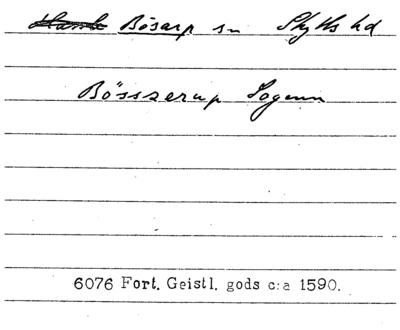 Bösarp sn Skytts hd
Bösszerup Sogenn
6076 Fort. Geistl. gods c:a 1590.